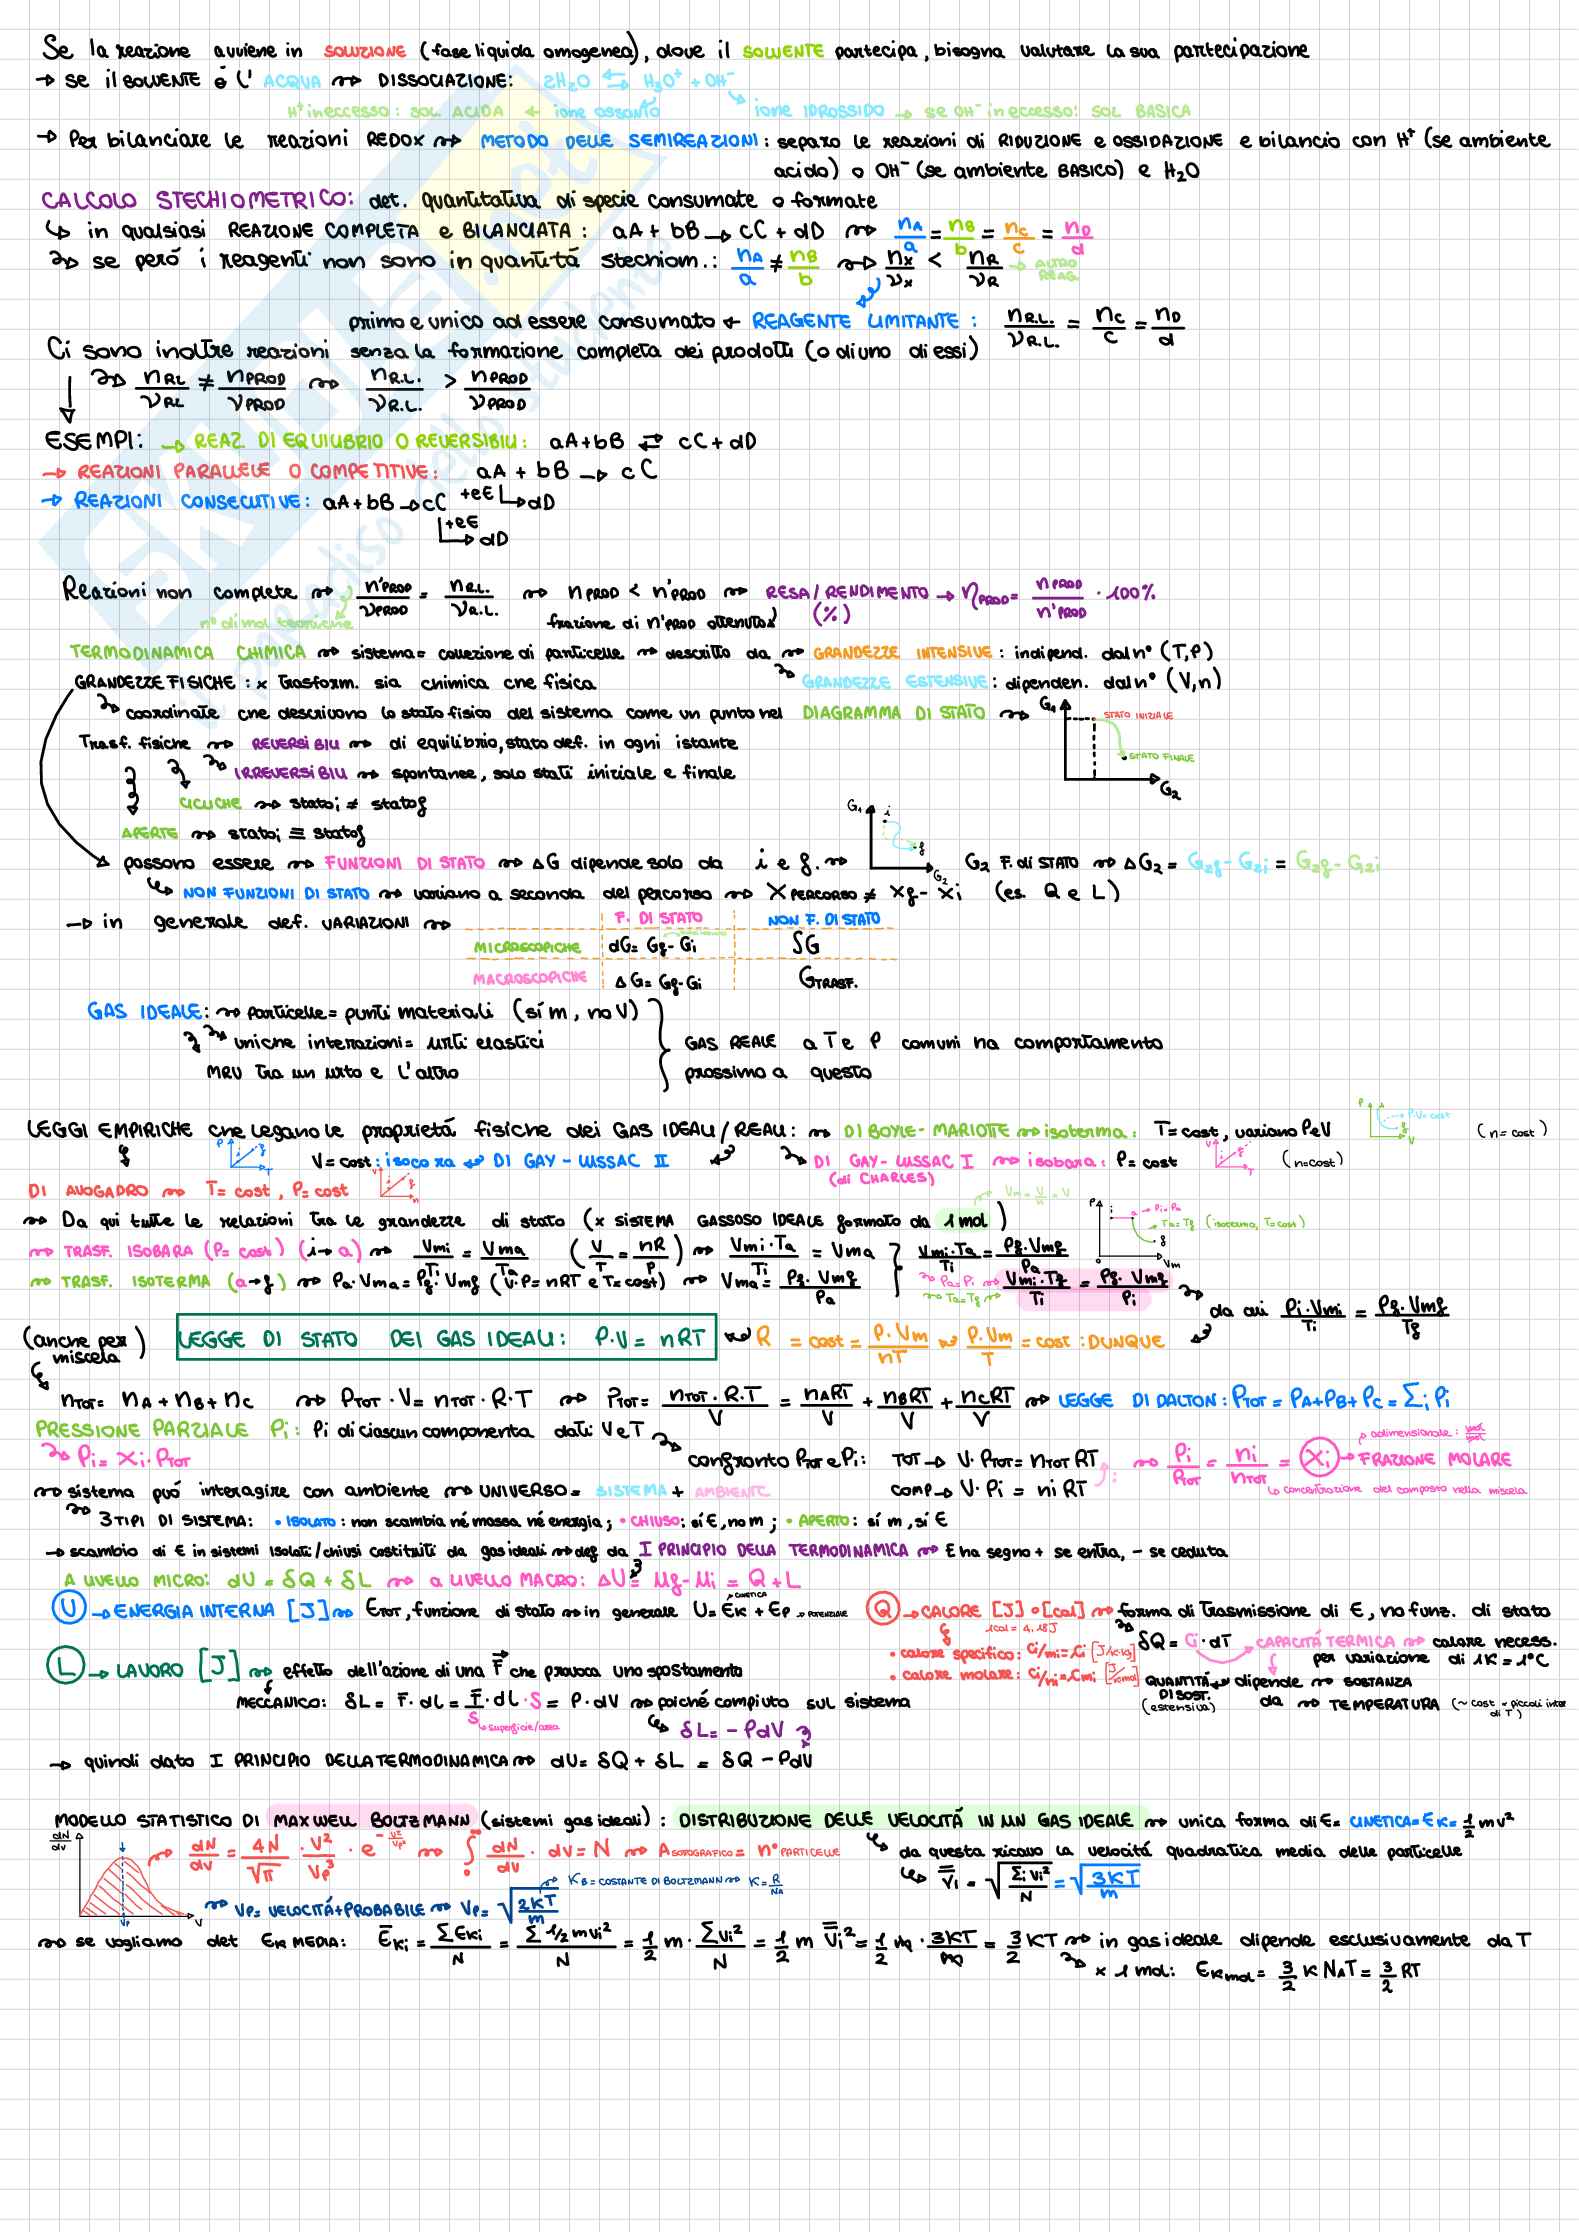 Se la reazione avviene in SOLUZIONE (fase liquida omogenea), dove il SOLVENTE partecipa, bisogna valutare la sua partecipazione
→ se il SOLVENTE è l' ACQUA ⇝ DISSOCIAZIONE: 2H₂O ⇆ H₃O⁺ + OH⁻
H⁺ in eccesso: SOL ACIDA ← ione ossonio ione IDROSSIDO → se OH⁻ in eccesso: SOL BASICA
→ Per bilanciare le reazioni REDOX ⇝ METODO DELLE SEMIREAZIONI: separo le reazioni di RIDUZIONE e OSSIDAZIONE e bilancio con H⁺ (se ambiente
acido) o OH⁻ (se ambiente BASICO) e H₂O
CALCOLO STECHIOMETRICO: det. quantitativa di specie consumate o formate
↳ in qualsiasi REAZIONE COMPLETA e BILANCIATA: aA + bB → cC + dD ⇝ nA/a = nB/b = nC/c = nD/d
⇝ se peró i reagenti non sono in quantitá stechiom.: nA/a ≠ nB/b ⇝ nx/νx < nR/νR → ALTRO REAG.
primo e unico ad essere consumato ← REAGENTE LIMITANTE: nR.L./νR.L. = nC/c = nD/d
Ci sono inoltre reazioni senza la formazione completa dei prodotti (o di uno di essi)
⇝ nRL/νRL ≠ nPROD/νPROD ⇝ nR.L./νR.L. > nPROD/νPROD
ESEMPI: → REAZ. DI EQUILIBRIO O REVERSIBILI: aA+bB ⇄ cC+dD
→ REAZIONI PARALLELE O COMPETITIVE: aA + bB → cC
+eE ↳ dD
→ REAZIONI CONSECUTIVE: aA+bB → cC
+eE ↳ dD
Reazioni non complete ⇝ n'PROD/νPROD = nR.L./νR.L. ⇝ nPROD < n'PROD ⇝ RESA/RENDIMENTO → ηPROD = nPROD/n'PROD · 100%
n° di mol teoriche frazione di n'PROD ottenuta (%)
TERMODINAMICA CHIMICA ⇝ sistema= collezione di particelle ⇝ descritto da ⇝ GRANDEZZE INTENSIVE: indipend. dal n° (T,P)
GRANDEZZE FISICHE: x trasform. sia chimica che fisica ⇝ GRANDEZZE ESTENSIVE: dipenden. dal n° (V,n)
⇝ coordinate che descrivono lo stato fisico del sistema come un punto nel DIAGRAMMA DI STATO ⇝ G₁ STATO INIZIALE STATO FINALE G₂
Trasf. fisiche ⇝ REVERSIBILI ⇝ di equilibrio, stato def. in ogni istante
⇝ IRREVERSIBILI ⇝ spontanee, solo stati iniziale e finale
CICLICHE ⇝ statoi ≠ statof
APERTE ⇝ statoi ≡ statof
possono essere ⇝ FUNZIONI DI STATO ⇝ ΔG dipende solo da i e f. ⇝ G₁ i f G₂ G₂ F. di STATO ⇝ ΔG₂ = G₂f - G₂i = G₂f - G₂i
↳ NON FUNZIONI DI STATO ⇝ variano a seconda del percorso ⇝ XPERCORSO ≠ Xf - Xi (es. Q e L)
→ in generale def. VARIAZIONI ⇝ F. DI STATO NON F. DI STATO
MICROSCOPICHE dG= Gf-Gi δG
MACROSCOPICHE ΔG= Gf-Gi GTRASF.
GAS IDEALE: ⇝ particelle= punti materiali (sí m, no V)
⇝ uniche interazioni= urti elastici GAS REALE a T e P comuni ha comportamento
MRU tra un urto e l'altro prossimo a questo
LEGGI EMPIRICHE che legano le proprietá fisiche dei GAS IDEALI/REALI: ⇝ DI BOYLE-MARIOTTE ⇝ isoterma: T=cost, variano P e V P P·V=cost V (n=cost)
P T V=cost: isocora DI GAY-LUSSAC II DI GAY-LUSSAC I ⇝ isobara: P=cost V T (n=cost)
(di CHARLES)
DI AVOGADRO ⇝ T=cost, P=cost V n
⇝ Da qui tutte le relazioni tra le grandezze di stato (x SISTEMA GASSOSO IDEALE formato da 1 mol) Vm = V/n = V
⇝ TRASF. ISOBARA (P=cost) (i→a) ⇝ Vmi/Ti = Vma/Ta (V/T = nR/P) ⇝ Vmi·Ta/Ti = Vma Vmi·Ta/Ti = Pf·Vmf/Pa
⇝ TRASF. ISOTERMA (a→f) ⇝ Pa·Vma = Pf·Vmf (V·P=nRT e T=cost) ⇝ Vma = Pf·Vmf/Pa
⇝ Pa=Pi ⇝ Ta=Tf ⇝ Vmi·Tf/Ti = Pf·Vmf/Pi
P i a → Pi=Pa → Ta=Tf (isoterma, T=cost) f Vm
da cui Pi·Vmi/Ti = Pf·Vmf/Tf
(anche per miscela) LEGGE DI STATO DEI GAS IDEALI: P·V = nRT R = cost = P·Vm/nT P·Vm/T = cost: DUNQUE
nTOT= nA+nB+nC ⇝ PTOT·V= nTOT·R·T ⇝ PTOT= nTOT·R·T/V = nART/V + nBRT/V + nCRT/V ⇝ LEGGE DI DALTON: PTOT = PA+PB+PC = Σi Pi
PRESSIONE PARZIALE Pi: Pi di ciascun componente dati V e T
⇝ Pi= Xi·PTOT confronto PTOT e Pi: TOT → V·PTOT= nTOT RT ⇝ Pi/PTOT = ni/nTOT = Xi → FRAZIONE MOLARE
adimensionale: mol/mol
⇝ sistema puó interagire con ambiente ⇝ UNIVERSO= SISTEMA + AMBIENTE COMP → V·Pi = ni RT ↳ concentrazione del composto nella miscela
⇝ 3 TIPI DI SISTEMA: • ISOLATO: non scambia né massa né energia; • CHIUSO: sí E, no m; • APERTO: sí m, sí E
→ scambio di E in sistemi isolati/chiusi costituiti da gas ideali ⇝ def da I PRINCIPIO DELLA TERMODINAMICA ⇝ E ha segno + se entra, - se ceduta
A LIVELLO MICRO: dU = δQ + δL ⇝ a LIVELLO MACRO: ΔU = Uf-Ui = Q+L
U → ENERGIA INTERNA [J] ⇝ ETOT, funzione di stato ⇝ in generale U= EK + EP CINETICA POTENZIALE
Q → CALORE [J] o [cal] ⇝ forma di trasmissione di E, no funz. di stato
1cal = 4,18J
• calore specifico: Ci/mi = ci [J/K·kg] δQ = Ci·dT CAPACITÁ TERMICA ⇝ calore necess.
per variazione di 1K = 1°C
• calore molare: Ci/ni = Cmi QUANTITÁ DI SOST. (estensiva) dipende da ⇝ SOSTANZA
⇝ TEMPERATURA (~cost x piccoli inter di T)
L → LAVORO [J] ⇝ effetto dell'azione di una F che provoca uno spostamento
MECCANICO: δL = F·dl = F/S·dl·S = P·dV ⇝ poiché compiuto sul sistema
↳ superficie/area ↳ δL= -PdV
→ quindi dato I PRINCIPIO DELLA TERMODINAMICA ⇝ dU= δQ + δL = δQ - PdV
MODELLO STATISTICO DI MAXWELL BOLTZMANN (sistemi gas ideali): DISTRIBUZIONE DELLE VELOCITÁ IN UN GAS IDEALE ⇝ unica forma di E= CINETICA= EK= ½mv²
dN/dv Vp V dN/dv = 4N/√π · v²/vp³ · e^(-v²/vp²) ⇝ ∫₀^∞ dN/dv · dv = N ⇝ A SOTTOGRAFICO = n° PARTICELLE
↳ da questa ricavo la velocitá quadratica media delle particelle
↳ v̄i = √(Σi vi²/N) = √(3KT/m)
KB = COSTANTE DI BOLTZMANN ⇝ K= R/NA
⇝ Vp= VELOCITÁ + PROBABILE ⇝ Vp= √(2KT/m)
⇝ se vogliamo det EK MEDIA: ĒKi = ΣEKi/N = Σ½mvi²/N = ½m·Σvi²/N = ½m v̄i² = ½m·3KT/m = 3/2 KT ⇝ in gas ideale dipende esclusivamente da T
⇝ x 1 mol: EKmol = 3/2 K NAT = 3/2 RT